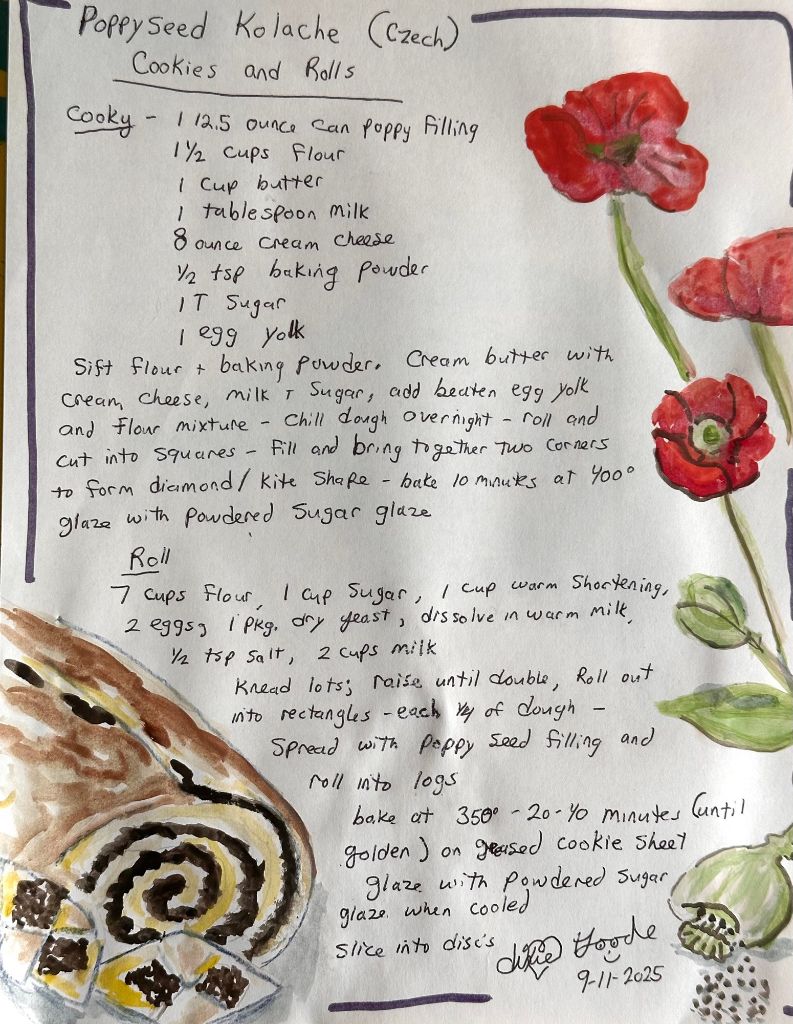 Poppyseed Kolache (Czech)
Cookies and Rolls
Cooky - 1 12.5 ounce can poppy filling
1 1/2 cups flour
1 cup butter
1 tablespoon milk
8 ounce cream cheese
1/2 tsp baking powder
1 T Sugar
1 egg yolk
Sift flour + baking powder. Cream butter with
cream cheese, milk + Sugar, add beaten egg yolk
and flour mixture - chill dough overnight - roll and
cut into squares - fill and bring together two corners
to form diamond/kite shape - bake 10 minutes at 400°
glaze with powdered sugar glaze
Roll
7 cups flour, 1 cup sugar, 1 cup warm shortening,
2 eggs, 1 pkg. dry yeast, dissolve in warm milk,
1/2 tsp salt, 2 cups milk
Knead lots; raise until double, Roll out
into rectangles - each 1/4 of dough -
Spread with poppy seed filling and
roll into logs
bake at 350° - 20-40 minutes (until
golden) on greased cookie sheet
glaze with powdered sugar
glaze when cooled
slice into discs
Dixie Goode
9-11-2025